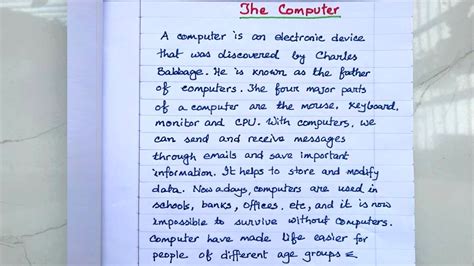 The Computer
A computer is an electronic device
that was discovered by Charles
Babbage. He is known as the father
of computers. The four major parts
of a computer are the mouse, keyboard,
monitor and CPU. With computers, we
can send and receive messages
through emails and save important
information. It helps to store and modify
data. Now adays, computers are used in
schools, banks, offices, etc, and it is now
impossible to survive without computers.
Computer have made life easier for
people of different age groups